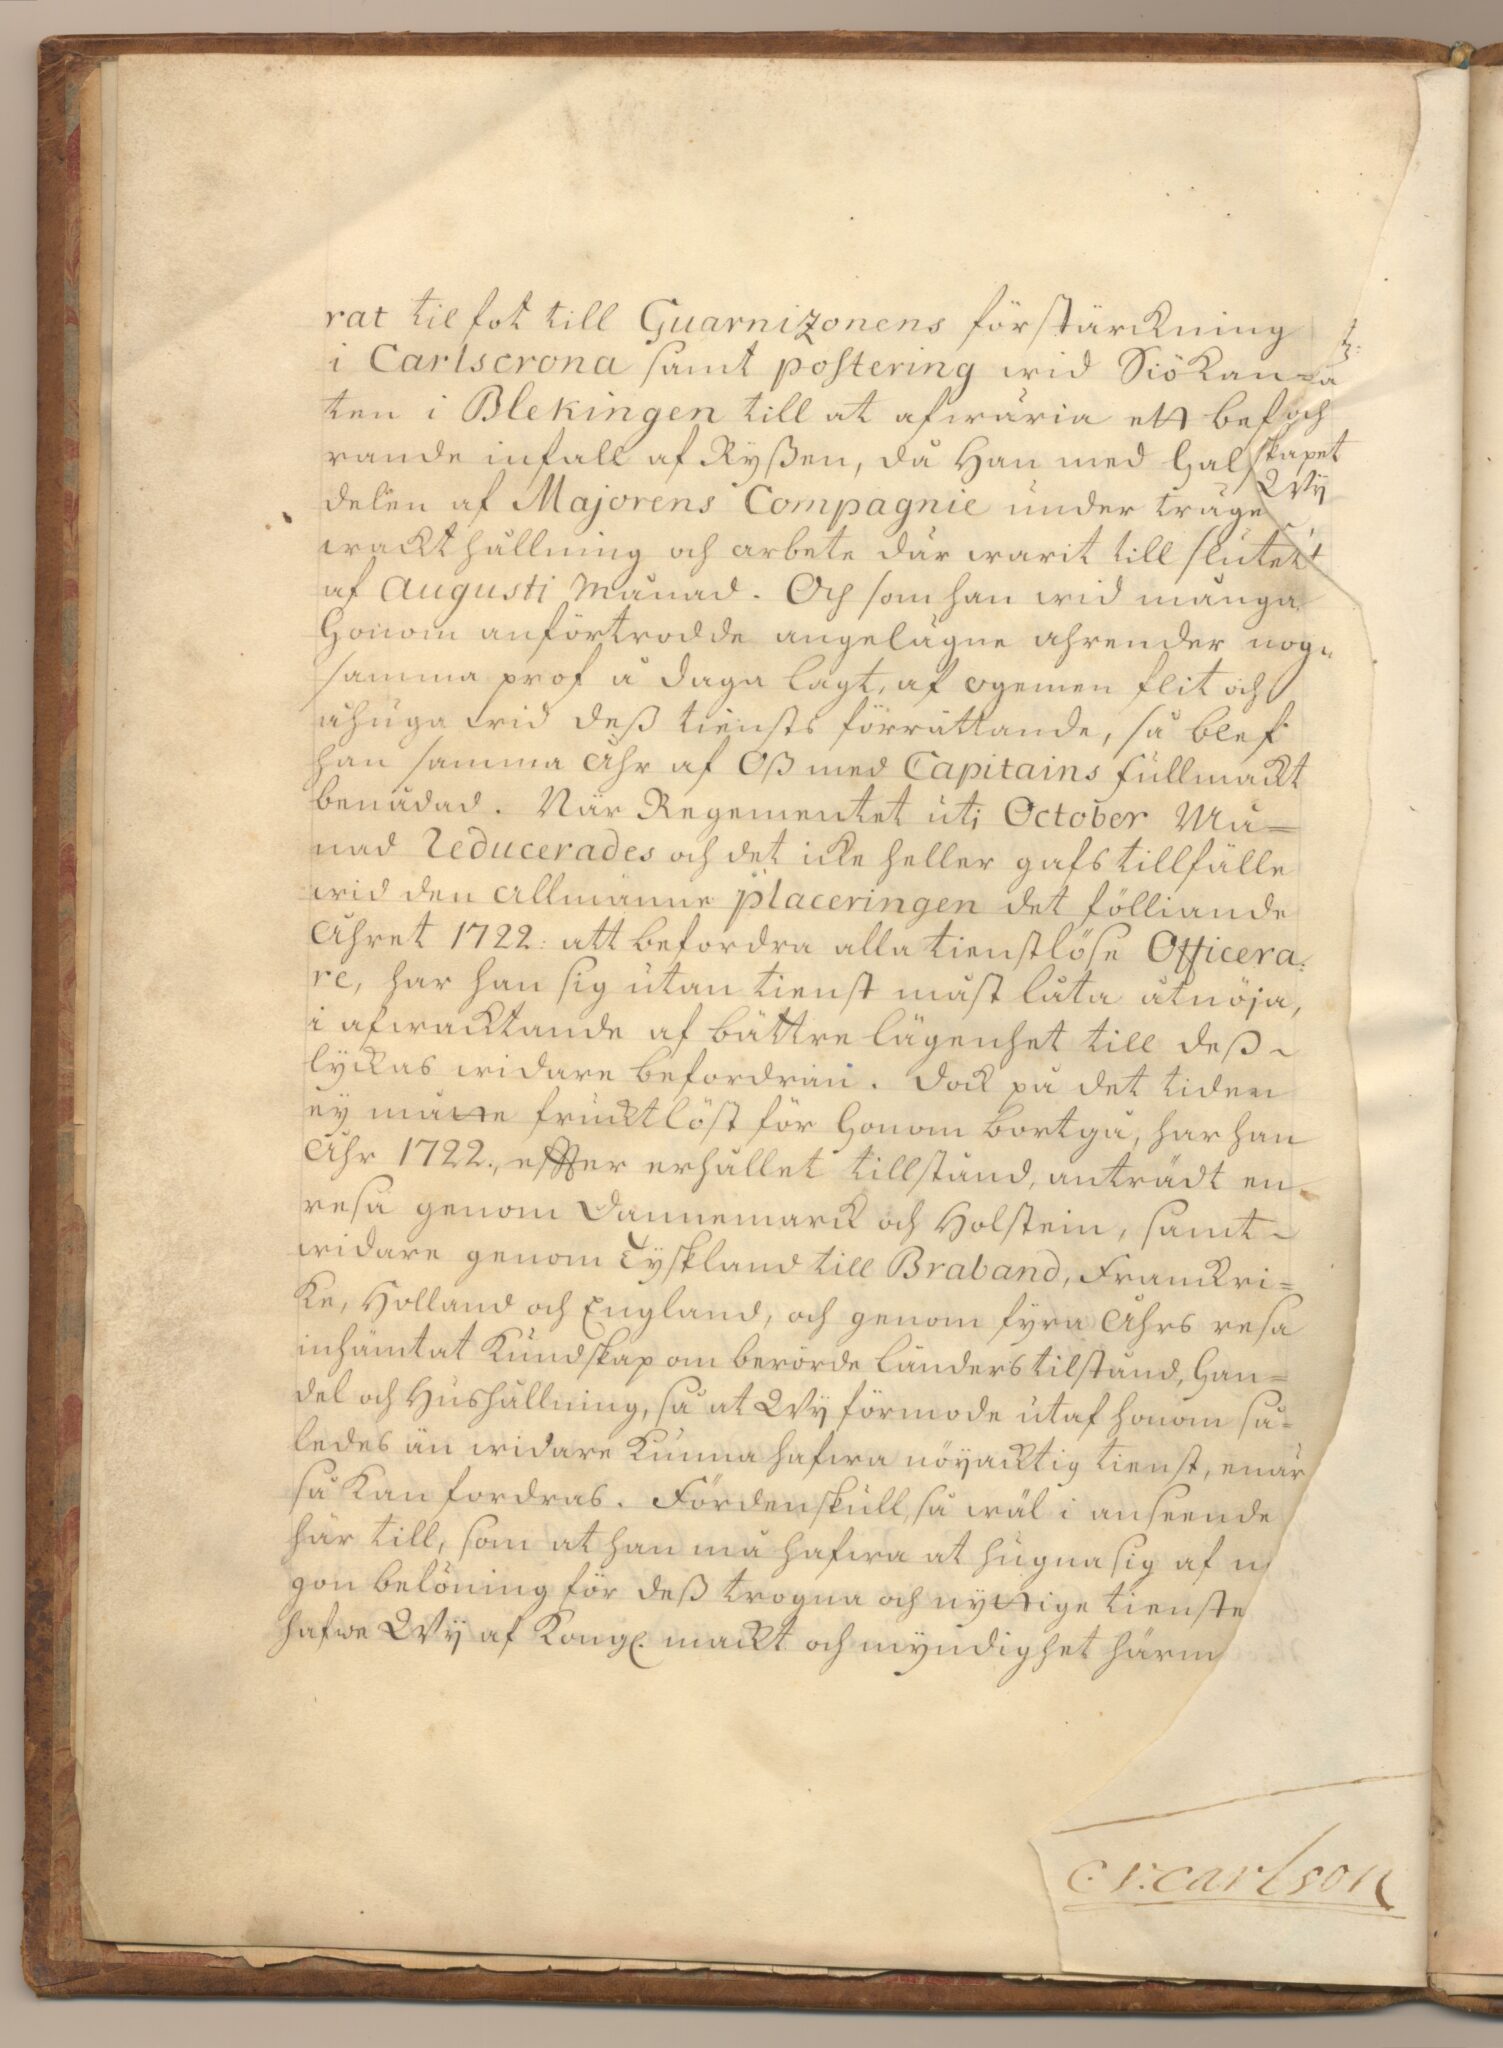 rat til fot till Guarnizonens förstärckning
i Carlscrona samt postering wid Siökan=
ten i Blekingen till at afwäria ett bef
rande infall af Ryßen, då Han med Hal
delen af Majorens Compagnie under träge
wackthållning och arbete där warit till slutet
af Augusti Månad. Och som han wid många
Honom anförtrodde angelägne ahrender nog=
samma prof å daga lagt, af ogemen flit och
åhuga wid deß tiensts förrättande, så blef
han samma Åhr af Oß med Capitains fullmackt
benådad. När Regementet uti October Må=
nad reducerades och det icke heller gafs tillfälle
wid den allmänne placeringen det följiande
Åhret 1722: att befordra alla tienstlöse Officera=
re, har han sig utan tienst måst låta åtnöja,
i afwacktande af bättre lägenhet till deß
lyckas widare befordran. Dock på det tiden
ey måtte fruktlöst för Honom bortgå, har han
Åhr 1722., effter erhållet tillstånd, anträdt en
resa genom Dannemarck och Holstein, samt
widare genom Tyskland till Braband, Franckri=
ke, Holland och England, och genom fyra Åhrs resa
inhämtat Kundskap om berörde länders tilstånd, Han=
del och Hushållning, så at Wÿ förmode utaf honom så=
ledes än widare kunna hafwa nöyacktig tienst, enär
så kan fordras. Fördenskull, så wäl i anseende
här till, som at han må hafwa at hugna sig af n
gon belöning för deß trogna och nyttige tienste
hafwe Wÿ af Kongl. mackt och myndighet härm
och
skapet
Wÿ
C. v. carlson